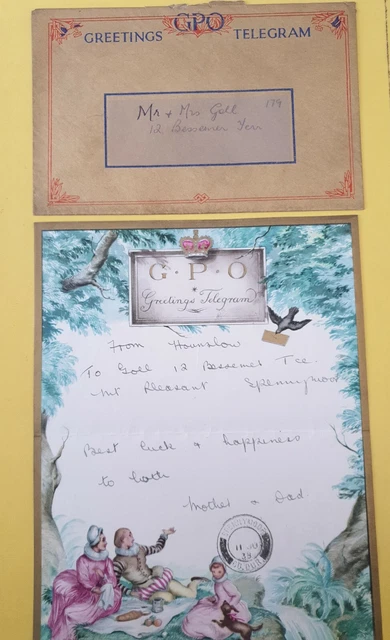 GPO
GREETINGS TELEGRAM
Mr + Mrs Goll 179
12 Bessemer Terr
G·P·O
Greetings Telegram
From Hounslow
To Goll 12 Bessemer Tce.
Mt Pleasant Spennymoor
Best luck & happiness
to both
Mother & Dad